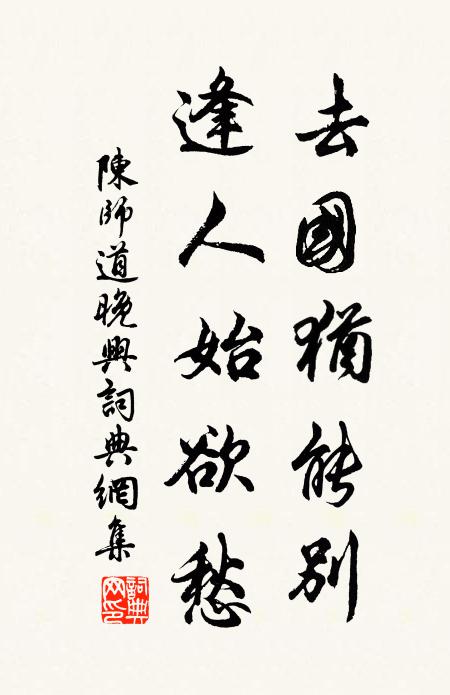 去國猶能別
逢人始欲愁
陳師道晚興詞典網集
詞典網印